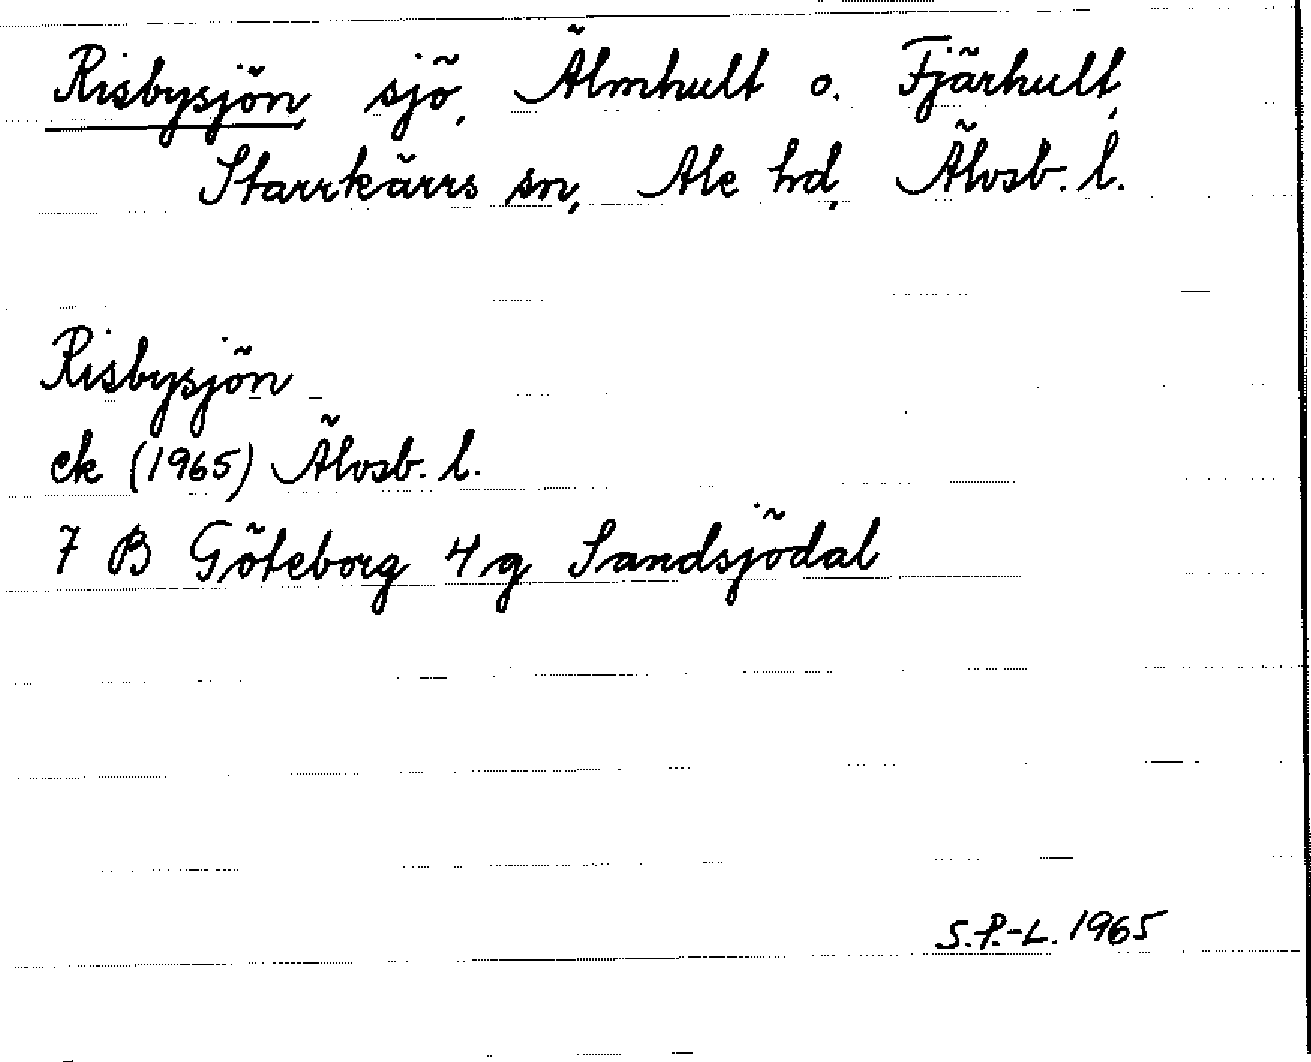 Risbysjön, sjö, Älmhult o. Fjärhult,
Starrkärrs sn, Ale hd, Älvsb. l.
Risbysjön
ek (1965) Älvsb. l.
7 B Göteborg 4 g Sandsjödal
S.P.-L. 1965